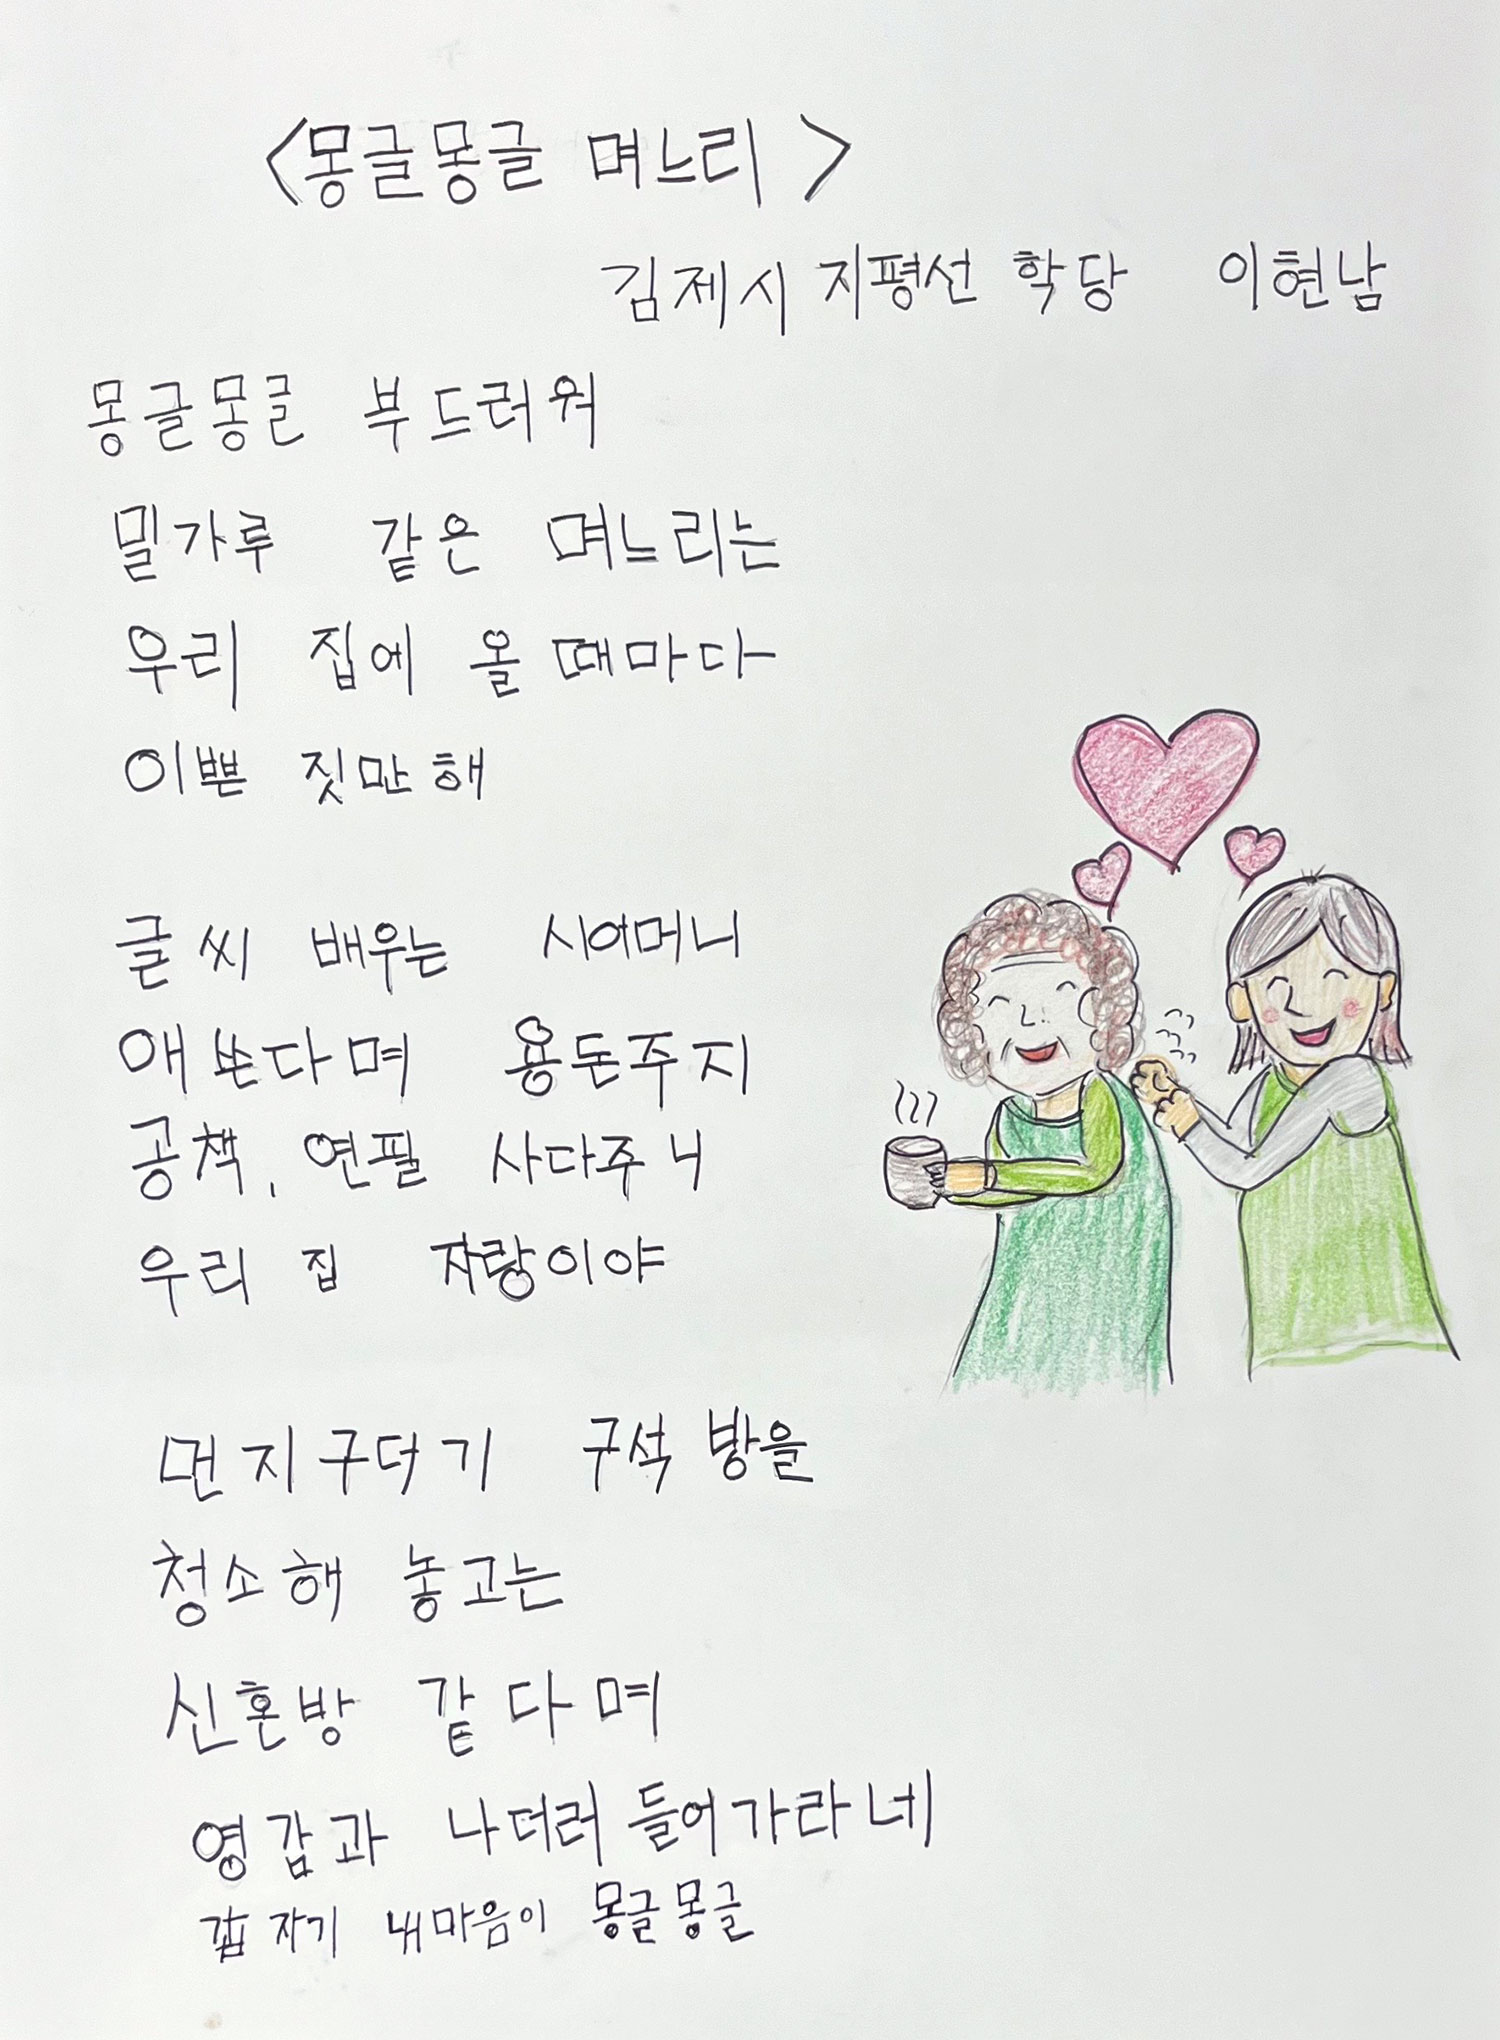 <몽글몽글 며느리>
김제시 지평선 학당 이현남
몽글몽글 부드러워
밀가루 같은 며느리는
우리 집에 올 때마다
이쁜 짓만 해
글씨 배우는 시어머니
애쓴다며 용돈주지
공책, 연필 사다주니
우리 집 자랑이야
먼지구더기 구석 방을
청소해 놓고는
신혼방 같다며
영감과 나더러 들어가라네
갑자기 내마음이 몽글몽글